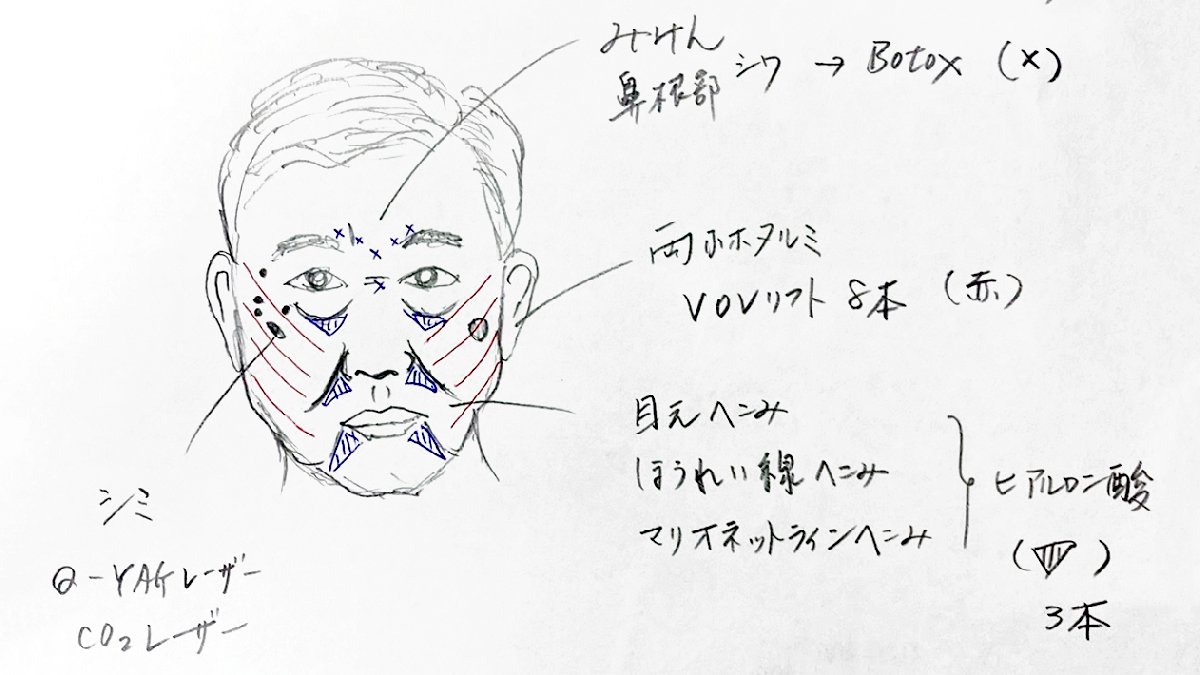 みけん
鼻根部 シワ → Botox (×)
両ホホタルミ
VOVリフト 8本 (赤)
目元ヘコみ
ほうれい線ヘコみ
マリオネットラインヘコみ
ヒアルロン酸
( )
3本
シミ
Q-YAGレーザー
CO₂レーザー